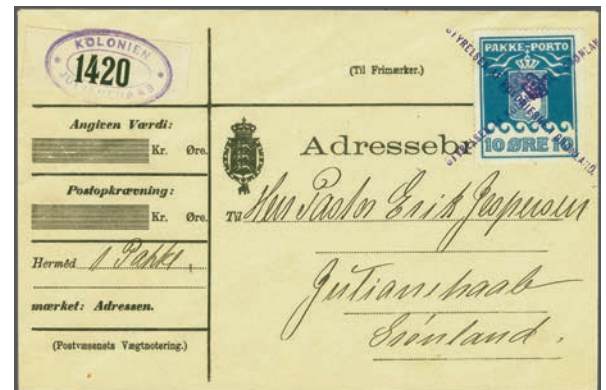 KOLONIEN
1420
(Til Frimærker.)
PAKKE-PORTO
10 ØRE 10
Angiven Værdi:
Kr. Øre.
Postopkrævning:
Kr. Øre.
Hermed 1 Pakke,
mærket: Adressen.
(Postvæsenets Vægtnotering.)
Til Herr Pastor Erik Jespersen
Julianehaab
Grønland.